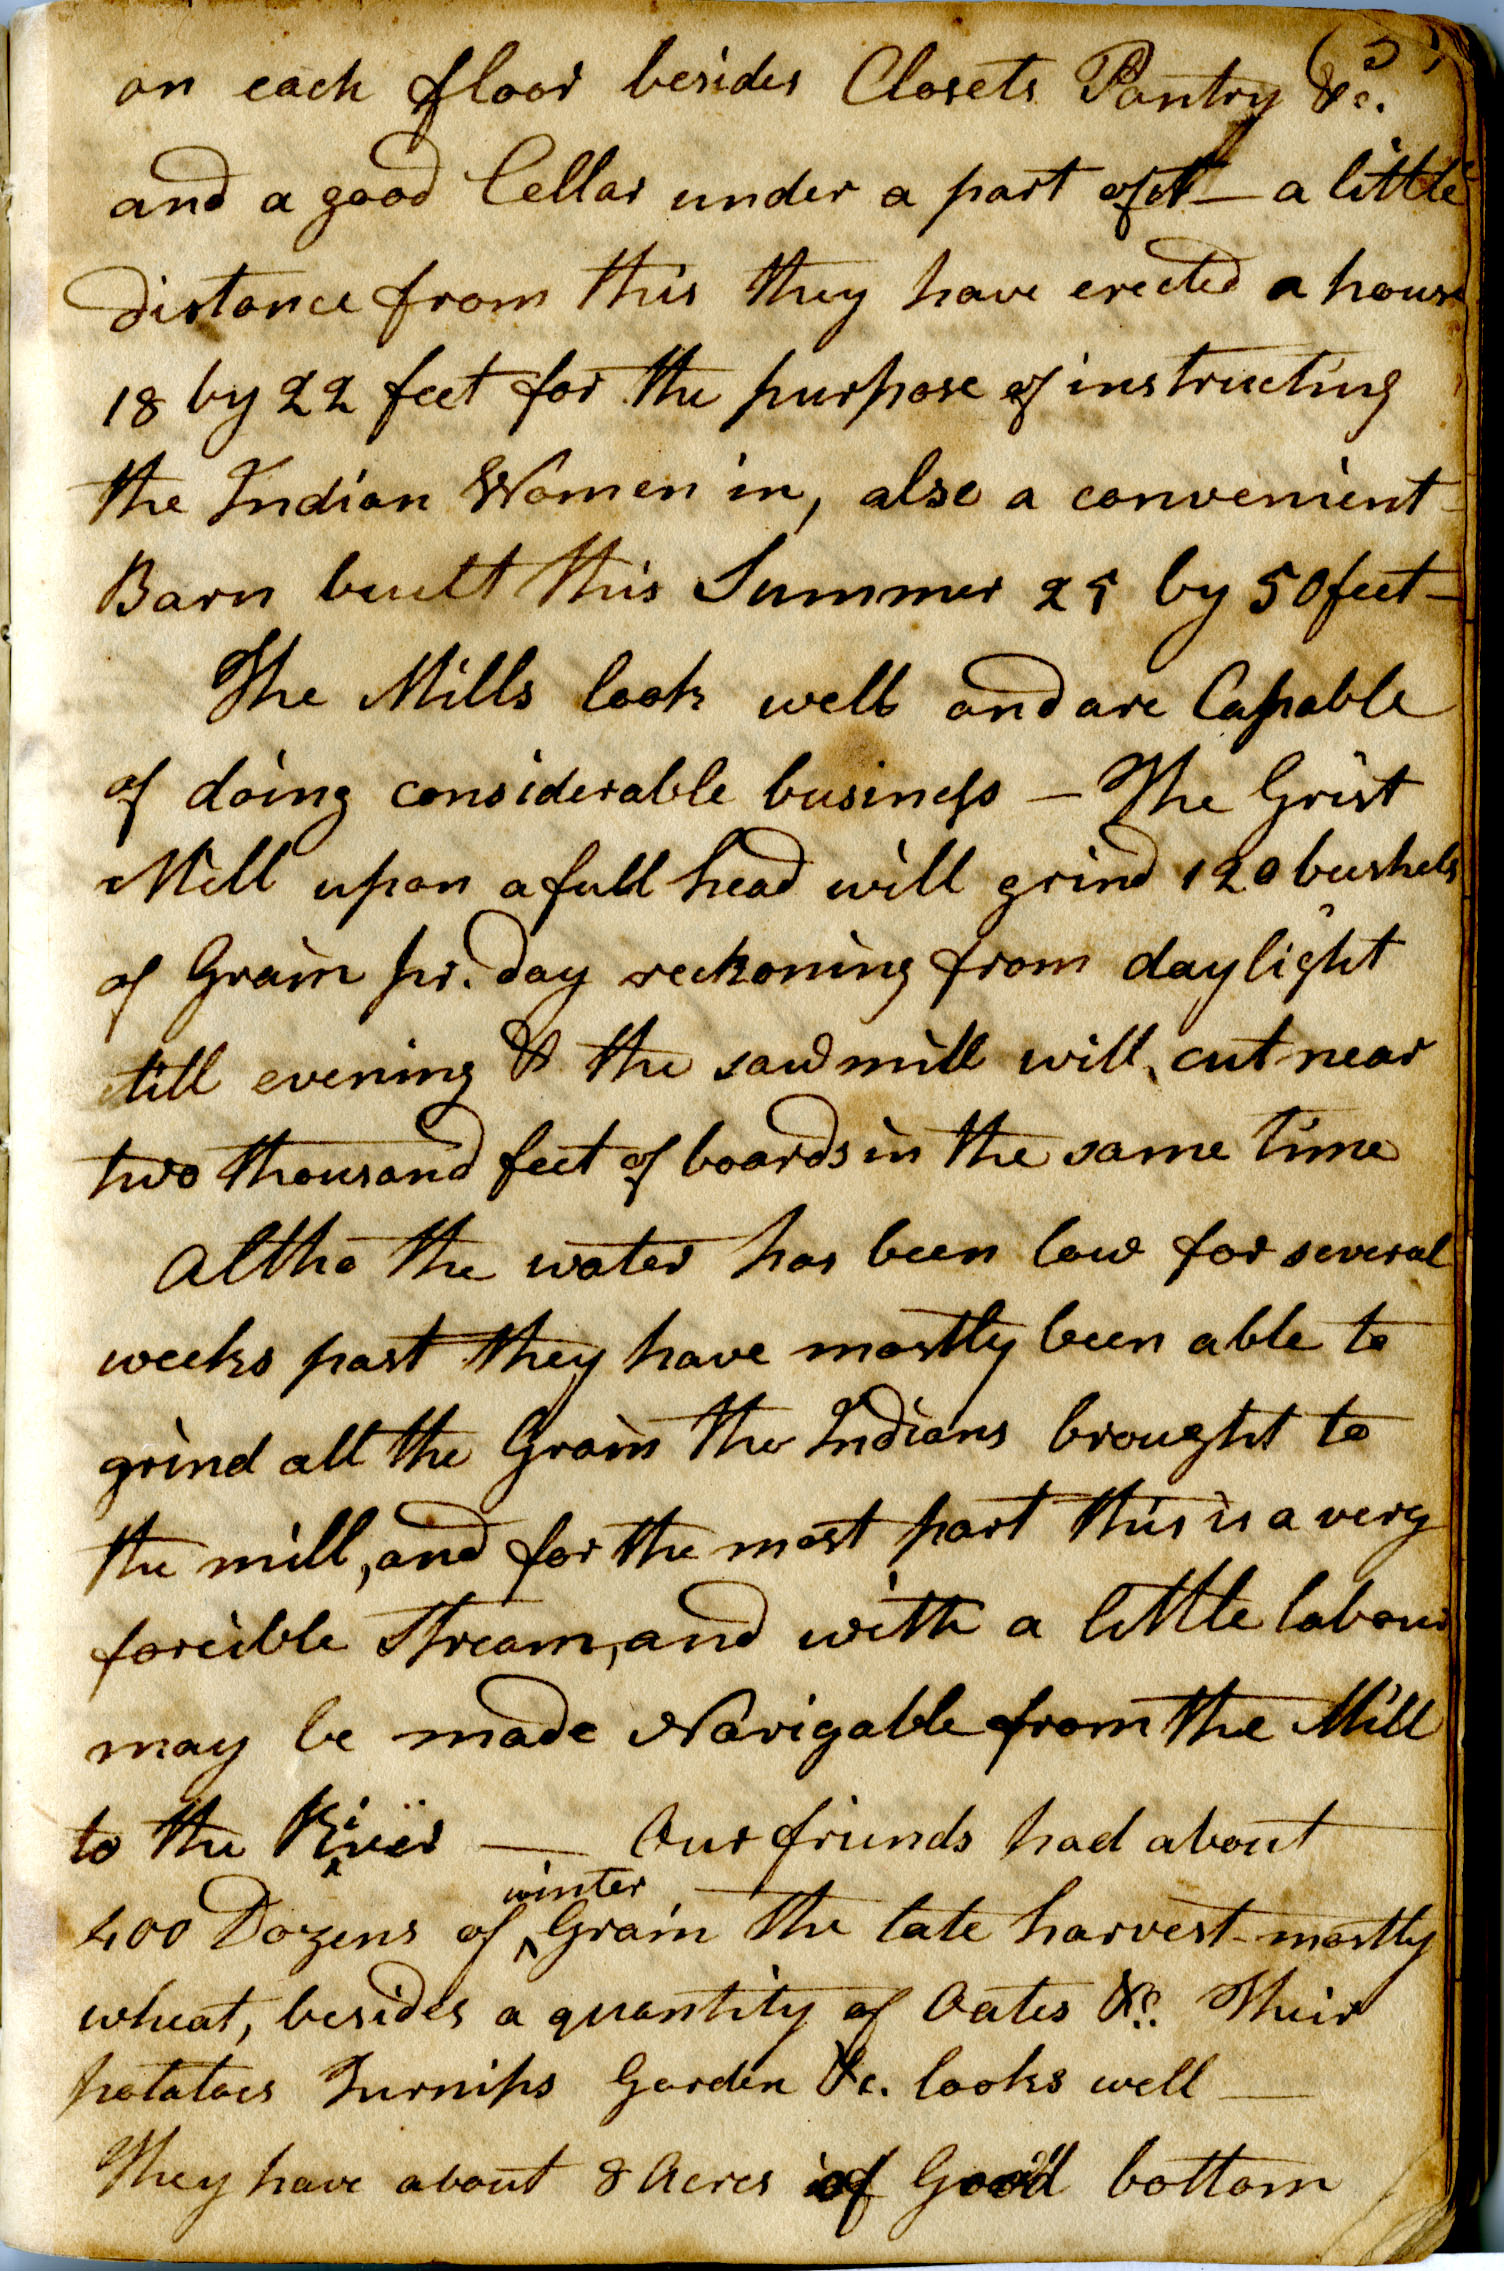 on each floor besides Closets Pantry &c.
and a good Cellar under a part of it — a little
distance from this they have erected a house
18 by 22 feet for the purpose of instructing
the Indian Women in, also a convenient
Barn built this Summer 25 by 50 feet —
The Mills look well and are Capable
of doing considerable business — The Grist
Mill upon a full head will grind 120 bushels
of Grain pr. day reckoning from daylight
till evening & the saw mill will cut near
two thousand feet of boards in the same time
Altho the water has been low for several
weeks past they have mostly been able to
grind all the Grain the Indians brought to
the mill, and for the most part this is a very
forcible Stream, and with a little labour
may be made Navigable from the Mill
to the River — Our friends had about
400 Dozens of winter Grain the late harvest - mostly
wheat, besides a quantity of Oates &c. Their
potatoes Turnips Garden &c. looks well —
They have about 8 Acres of Good bottom